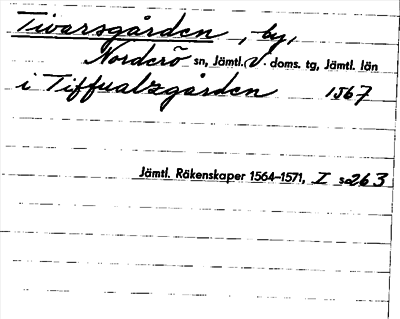 Tivarsgården, by,
Norderö sn, Jämtl. V. doms. tg, Jämtl. län
i Tiffualzgården 1567
Jämtl. Räkenskaper 1564–1571, I s. 263